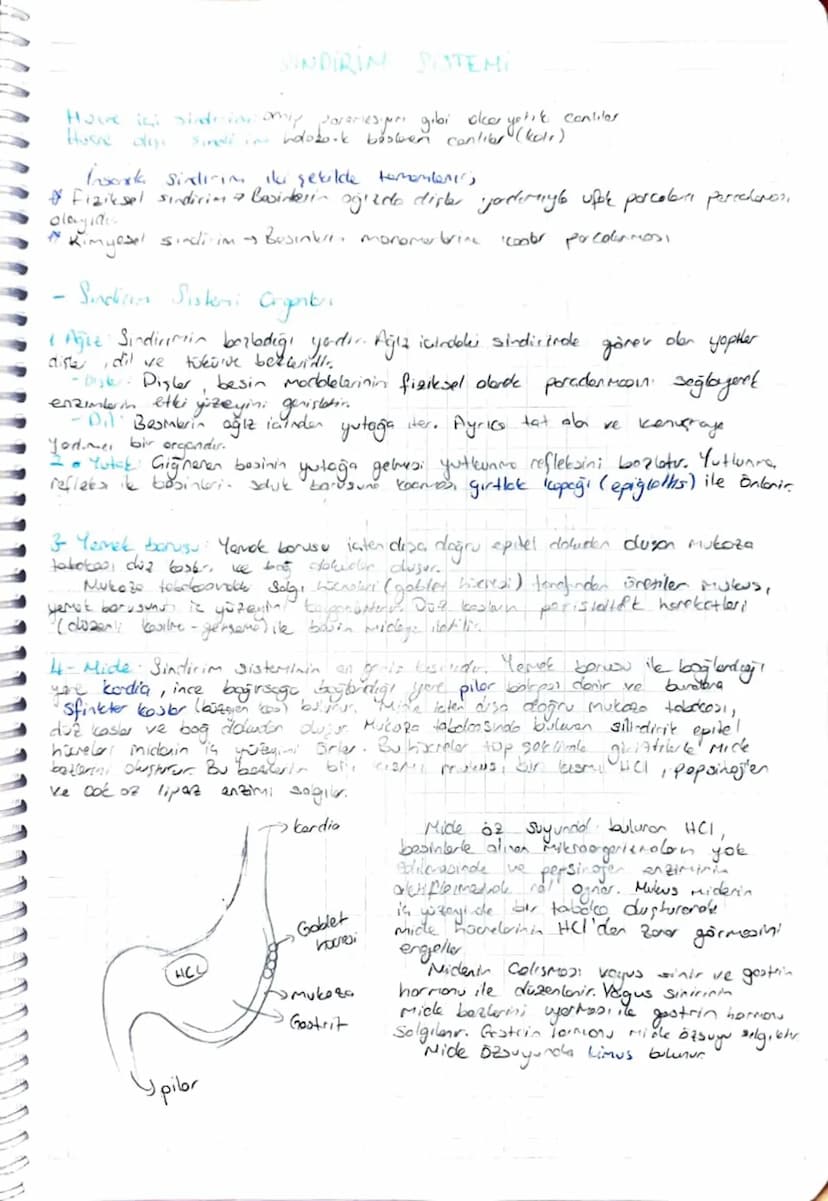 SİNDİRİM SİSTEMİ
Hücre içi sindirim: amip gibi ökaryotik canlılar
Hücre dışı sindirim beslenen canlılar
İnsanda sindirim iki şekilde tamamlanır;
* Fiziksel sindirim → Besinlerin ağızda dişler yardımıyla ufak parçaları parçalanası
olayıdır
* Kimyasal sindirim → Besinlerin monomerlerine kadar parçalanması
- Sindirim Sistemi Organları
1 Ağız: Sindirimin başladığı yerdir. Ağız içindeki sindirimde görev alan yapılar
dişler, dil ve tükürük bezleridir.
- Dişler: Dişler, besin maddelerinin fiziksel olarak parçalanmasını sağlayarak
enzimlerin etki yüzeyini genişletir.
- Dil: Besinlerin ağız içinden yutağa iter. Ayrıca tat alma ve konuşmaya
yardımcı bir organdır.
2 • Yutak: Çiğnenen besinin yutağa gelmesi yutkunma refleksini başlatır. Yutkunma
refleksi ile besinlerin soluk borusuna kaçması gırtlak kapağı (epiglottis) ile önlenir.
3- Yemek borusu: Yemek borusu içten dışa doğru epitel dokudan oluşan mukoza
tabakası, düz kaslar ve bağ dokudan oluşur.
Mukoza tabakasındaki salgı hücreleri (goblet hücresi) tarafından üretilen mukus,
yemek borusunun iç yüzeyini kayganlaştırır. Düz kasların peristaltik hareketleri
(düzenli kasılma - gevşeme) ile besin mideye iletilir.
4- Mide: Sindirim sisteminin en geniş kısmıdır. Yemek borusu ile bağlandığı
yere kardia, ince bağırsağa bağlandığı yere pilor kapısı denir ve buralara
sfinkter kaslar (büzgen kas) bulunur. Mide içten dışa doğru mukoza tabakası,
düz kaslar ve bağ dokudan oluşur. Mukoza tabakasında bulunan silindirik epitel
hücreleri midenin iç yüzeyini örter. Bu hücreler tüp şeklinde mide
bezlerini oluşturur. Bu bezlerin bir kısmı mukus, bir kısmı HCl, pepsinojen
ve çok az lipaz enzimi salgılar.
kardia
Goblet
hücresi
HCL
mukoza
Gastrit
pilor
Mide öz suyunda bulunan HCl,
besinlerle alınan mikroorganizmaların yok
edilmesinde ve pepsinojen enziminin
aktifleşmesinde rol oynar. Mukus midenin
iç yüzeyinde bir tabaka oluşturarak
mide hücrelerinin HCl'den zarar görmesini
engeller
Midenin çalışması vagus sinir ve gastrin
hormonu ile düzenlenir. Vagus sinirinin
mide bezlerini uyarması ile gastrin hormonu
salgılanır. Gastrin hormonu mide özsuyu salgılatır
Mide özsuyunda Limus bulunur